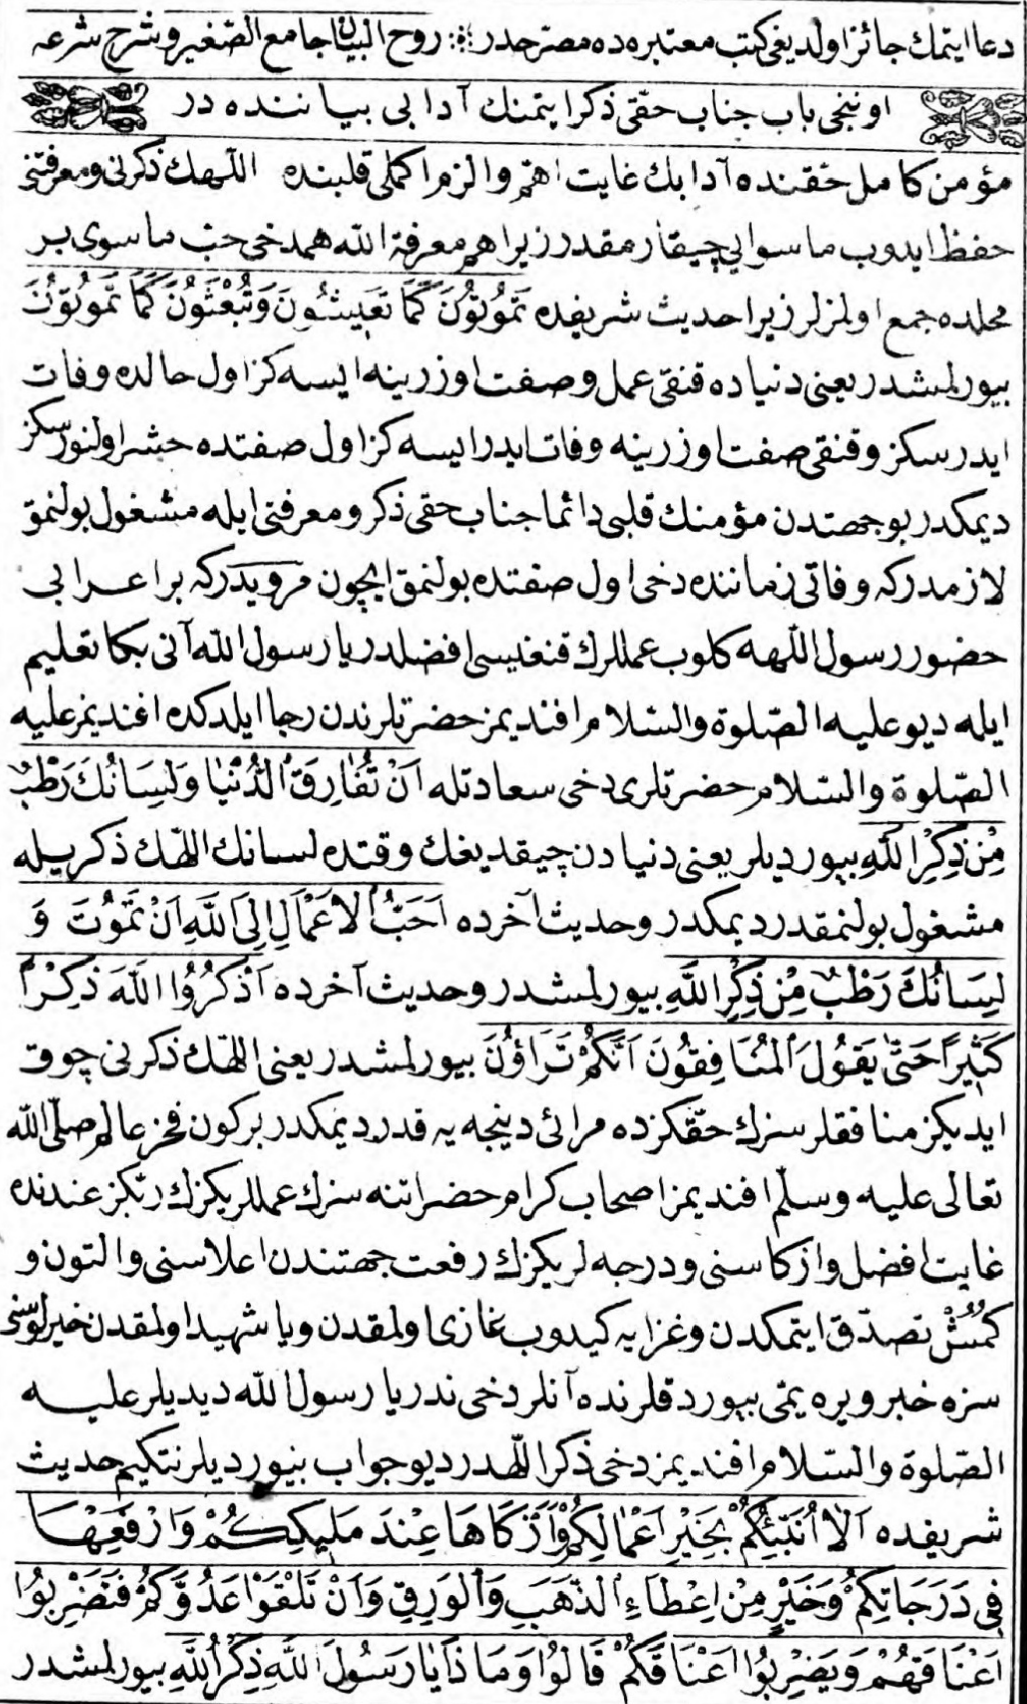 دعا ايتمك جائز اولديغى كتب معتبره ده مصرحدر روح البيان جامع الصغير و شرح شرعه
اوننجى باب جناب حقى ذكر ايتمنك آدابى بياننده در
مؤمن كامل حقنده آدابك غايت اهم والزم اكملى قلبنده اللهك ذكرنى ومعرفتنى
حفظ ايدوب ماسوايى چيقارمقدر زيرا هم معرفة الله همدخى حب ماسوى بر
محلده جمع اولمزلر زيرا حديث شريفده تَمُوتُونَ كَمَا تَعِيشُونَ وَتُبْعَثُونَ كَمَا تَمُوتُونَ
بيورلمشدر يعنى دنياده قنقى عمل وصفت اوزرينه ايسه كز اول حالده وفات
ايدرسكز وقنقى صفت اوزرينه وفات ايدر ايسه كز اول صفتده حشر اولنورسكز
ديمكدر بو جهتدن مؤمنك قلبى دائما جناب حقى ذكر ومعرفتى ايله مشغول بولنمق
لازمدركه وفاتى زماننده دخى اول صفتده بولنمق ايچون مرويدركه بر اعرابى
حضور رسول اللهه كلوب عمللرك قنغيسى افضلدر يا رسول الله آنى بكا تعليم
ايله ديو عليه الصلوة والسلام افنديمز حضرتلرندن رجا ايلدكده افنديمز عليه
الصلوة والسلام حضرتلرى دخى سعادتله اَنْ تُفَارِقَ الدُّنْيَا وَلِسَانُكَ رَطْبٌ
مِنْ ذِكْرِ اللهِ بيورديلر يعنى دنيادن چيقديغك وقتده لسانك اللهك ذكريله
مشغول بولنمقدر ديمكدر وحديث آخرده اَحَبُّ الْاَعْمَالِ اِلَى اللهِ اَنْ تَمُوتَ وَ
لِسَانُكَ رَطْبٌ مِنْ ذِكْرِ اللهِ بيورلمشدر وحديث آخرده اُذْكُرُوا اللهَ ذِكْرًا
كَثِيرًا حَتَّى يَقُولَ الْمُنَافِقُونَ اَنَّكُمْ تَرَاؤُنَ بيورلمشدر يعنى اللهك ذكرنى چوق
ايديكز منافقلر سزك حقكزده مرائى دينجه يه قدر ديمكدر بركون فخر عالم صلى الله
تعالى عليه وسلم افنديمز اصحاب كرام حضراتنه سزك عمللريكزك ربكز عندنده
غايت افضل وازكاسنى ودرجه لريكزك رفعت جهتندن اعلاسنى والتون و
كمش تصدق ايتمكدن وغزايه كيدوب غازى اولمقدن ويا شهيد اولمقدن خيرلوسنى
سزه خبر ويره يمى بيوردقلرنده آنلر دخى ندر يا رسول الله ديديلر عليه
الصلوة والسلام افنديمز دخى ذكر اللهدر ديو جواب بيورديلر نتكيم حديث
شريفده اَلَا اُنَبِّئُكُمْ بِخَيْرِ اَعْمَالِكُمْ وَاَزْكَاهَا عِنْدَ مَلِيكِكُمْ وَاَرْفَعِهَا
فِى دَرَجَاتِكُمْ وَخَيْرٍ مِنْ اِعْطَاءِ الذَّهَبِ وَالْوَرِقِ وَاَنْ تَلْقَوْا عَدُوَّكُمْ فَتَضْرِبُوا
اَعْنَاقَهُمْ وَيَضْرِبُوا اَعْنَاقَكُمْ قَالُوا وَمَا ذَا يَا رَسُولَ اللهِ ذِكْرُ اللهِ بيورلمشدر